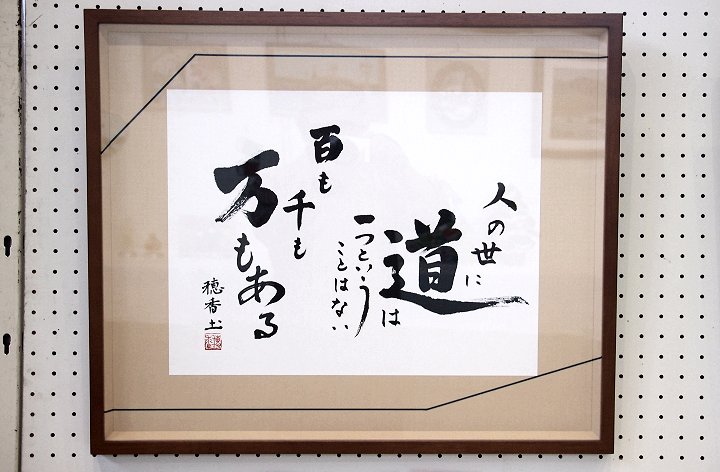 人の世に
道は
一つという
ことはない
百も
千も
万もある
穂香書